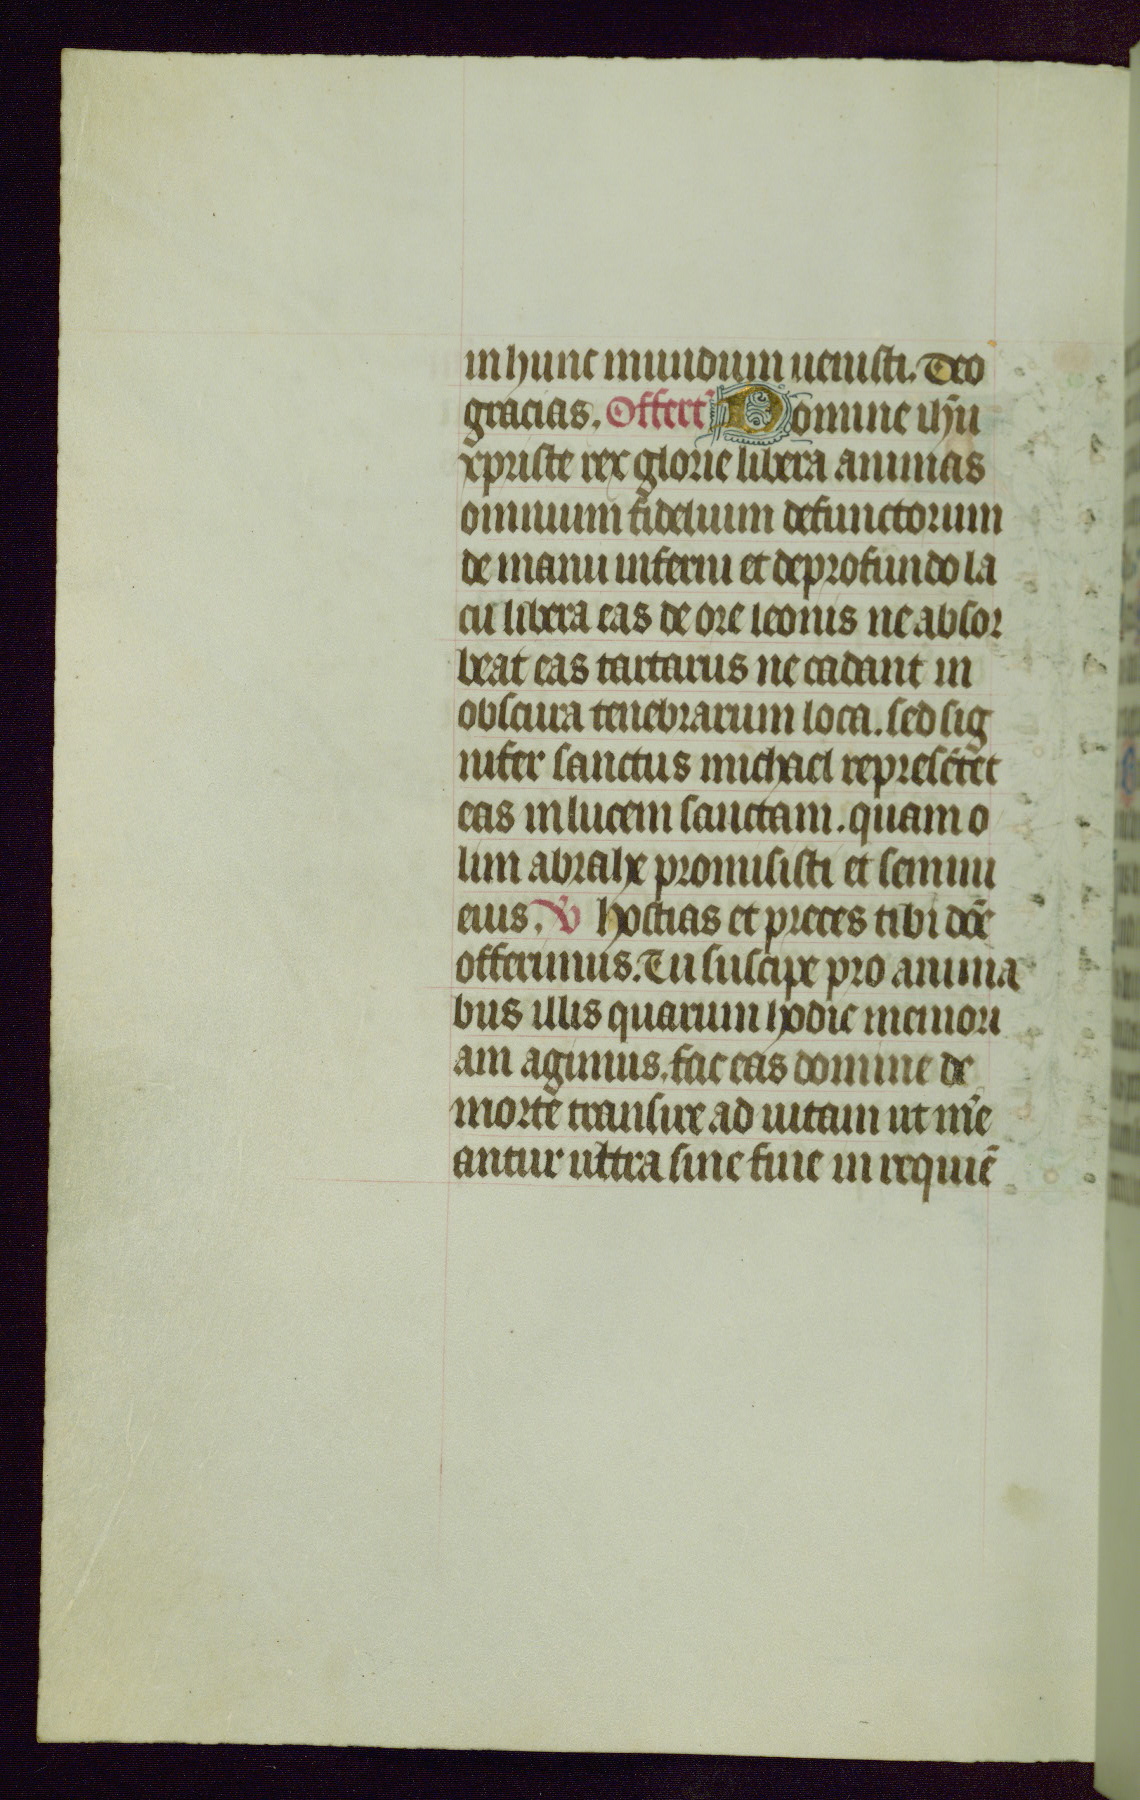 in hunc mundum uenisti. Deo
gracias. Offert' Domine ihū
xpriste rex glorie libera animas
omnium fidelium defunctorum
de manu inferni et deprofundo la
cu libera eas de ore leonis ne absor
beat eas tartarus ne cadant in
obscura tenebrarum loca. sed sig
nifer sanctus michael represētet
eas in lucem sanctam. quam o
lim abrahe promisisti et semini
eius. V hostias et preces tibi dn̄e
offerimus. Tu suscipe pro anima
bus illis quarum hodie memori
am agimus. fac eas domine de
morte transire ad uitam ut m̄e
antur ultra sine fine in requiē